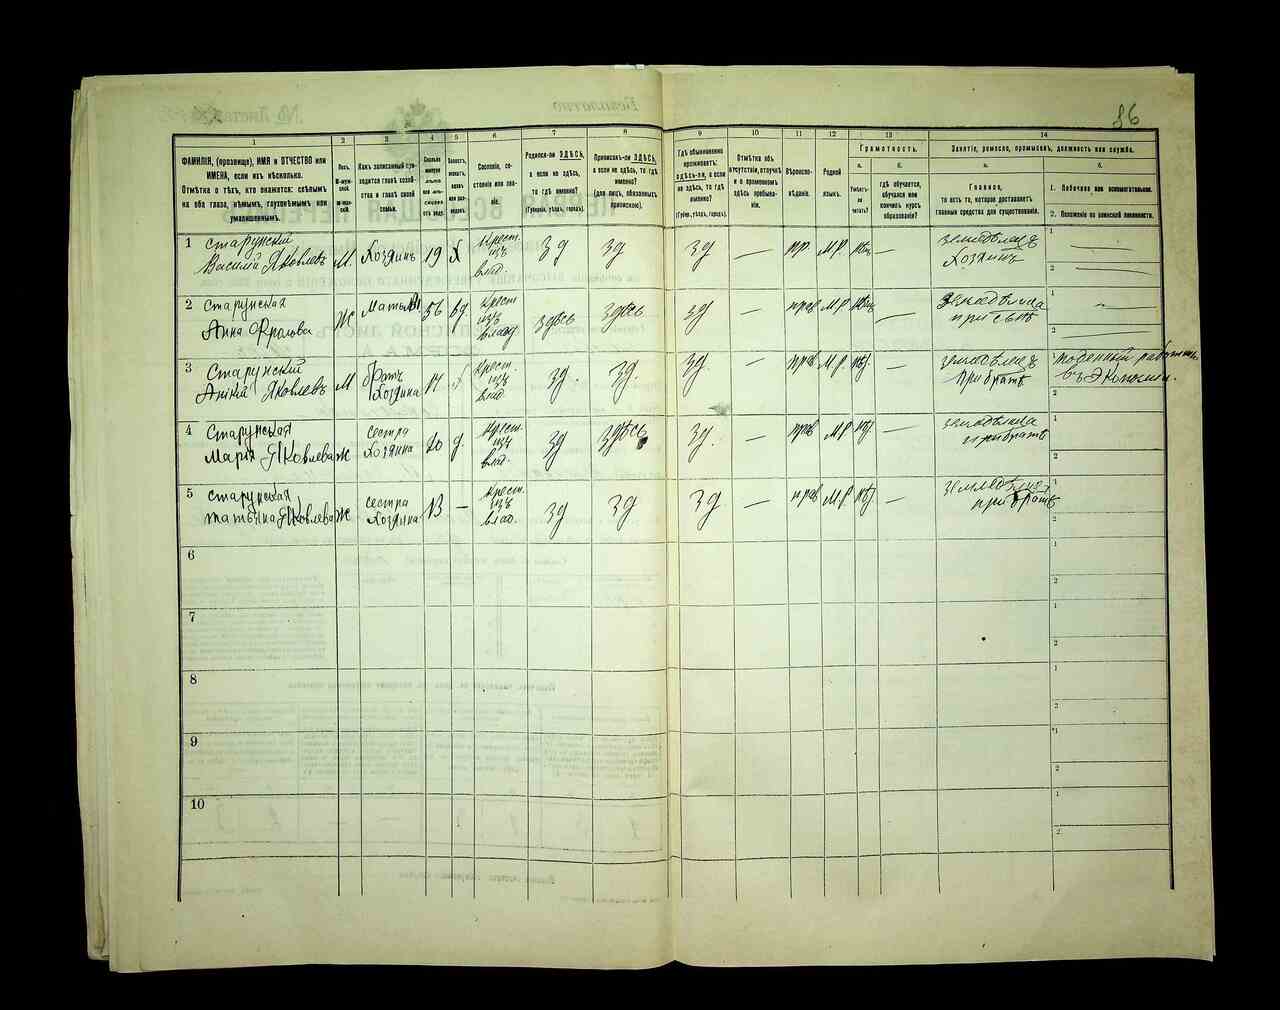 86
1
2
3
4
5
6
7
8
9
10
11
12
13
14
ФАМИЛІЯ, (прозвище), ИМЯ и ОТЧЕСТВО или
ИМЕНА, если ихъ нѣсколько.
Отмѣтка о тѣхъ, кто окажется: слѣпымъ
на оба глаза, нѣмымъ, глухонѣмымъ или
умалишеннымъ.
Полъ.
М-муж-
ской.
Ж-жен-
скій.
Какъ записанный при-
ходится главѣ хозяй-
ства и главѣ своей
семьи.
Сколько
минуло
лѣтъ
или мѣ-
сяцевъ
отъ роду.
Холостъ,
женатъ,
вдовъ
или раз-
веденъ.
Сословіе, со-
стояніе или зва-
ніе.
Родился-ли ЗДѢСЬ,
а если не здѣсь,
то гдѣ именно?
(Губернія, уѣздъ, городъ).
Приписанъ-ли ЗДѢСЬ,
а если не здѣсь, то гдѣ
именно?
(для лицъ, обязанныхъ
припискою).
Гдѣ обыкновенно
проживаетъ:
здѣсь-ли, а если
не здѣсь, то гдѣ
именно?
(Губерн., уѣздъ, городъ).
Отмѣтка объ
отсутствіи, отлучкѣ
и о временномъ
здѣсь пребыва-
ніи.
Вѣроиспо-
вѣданіе.
Родной
языкъ.
Грамотность.
а.
б.
Умѣетъ-
ли
читать?
гдѣ обучается,
обучался или
кончилъ курсъ
образованія?
Занятіе, ремесло, промыселъ, должность или служба.
а.
б.
Главное,
то есть то, которое доставляетъ
главныя средства для существованія.
1. Побочное или вспомогательное.
2. Положеніе по воинской повинности.
1 Старунскій
Василій Яковлевъ М. Хозяинъ 19 Х Крест. изъ влад. зд зд зд — пр. М.Р. нѣт —
Хозяинъ
2 Старунская
Анна Фролова Ж Мать 56 вд Крест изъ влад здѣсь здѣсь зд — прав М.Р —
при сынѣ
3 Старунскій
Яковлевъ М братъ Хозяина 17 Х Крест. изъ влад. зд. зд. зд. — прав М.Р. —
при братѣ
4 Старунская
Марія Яковлева Ж сестра Хозяина 20 д. Крест. изъ влад. зд здѣсь зд. — прав М.Р —
при братѣ
5 Старунская
Татьяна Яковлева Ж сестра Хозяина 13 — Крест. изъ влад. зд зд зд — прав М.Р —
при братѣ
6
7
8
9
10